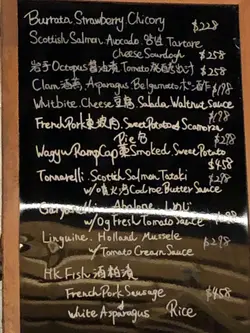 Burrata Strawberry Chicory $228
Scottish Salmon Avocado Tartare
Cheese Sourdough $258
岩手 Octopus 醬油漬 Tomato $258
Clam 酒蒸 Asparagus Belgametoポン酢 $198
Whitbite Cheese 豆腐 Salada Walnut Sauce
$198
French Pork Sweet Potato & Scamorza
Pie $298
Wagyu Rump Cap Smoked Sweet Potato
$458
Tonnarelli Scottish Salmon Tataki $298
w/ Cod roe Butter Sauce
Abalone
w/ Og Fresh Tomato Sauce
Linguine Holland Mussele $298
w/ Tomato Cream Sauce
HK Fish 酒粕漬
French Pork Sausage $458
White Asparagus Rice